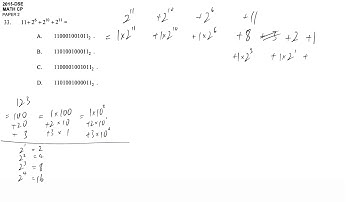 2011-DSE
MATH CP
PAPER 2
33. 11 + 2⁶ + 2¹⁰ + 2¹¹ =
A. 110001001011₂ .
B. 110100010011₂ .
C. 1100001001011₂ .
D. 1101001000011₂ .
2¹¹ + 2¹⁰ + 2⁶ + 11
= 1×2¹¹ + 1×2¹⁰ + 1×2⁶ + 8 + 2 + 1
+1×2³ + 1×2¹ +
123
= 100 = 1×100 = 1×10²
+20 +2×10 +2×10¹
+ 3 +3×1 +3×10⁰
2¹ = 2
2² = 4
2³ = 8
2⁴ = 16